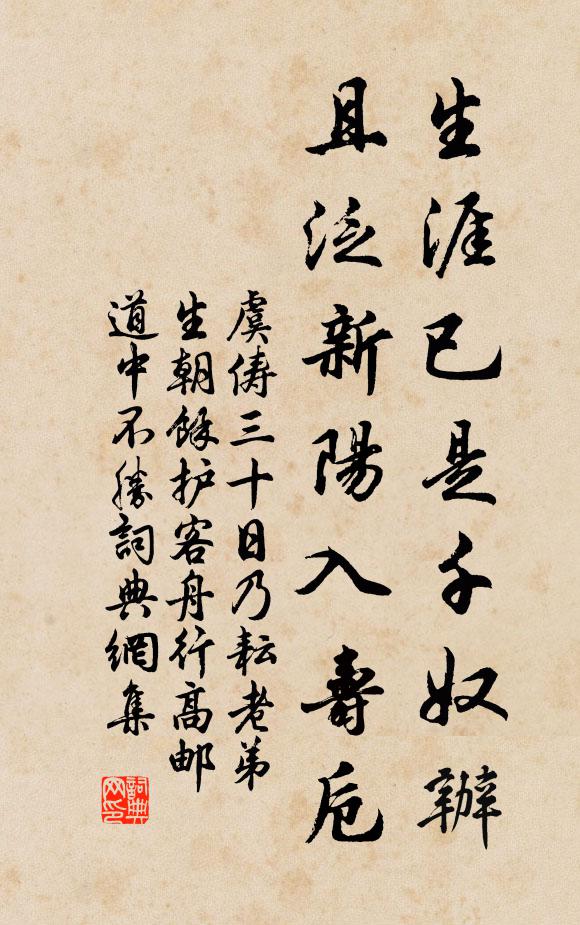 生涯已是千奴辦
且泛新陽入壽卮
虞儔三十日乃耘老弟
生朝餘护客舟行高邮
道中不勝詞典網集
詞典
网印